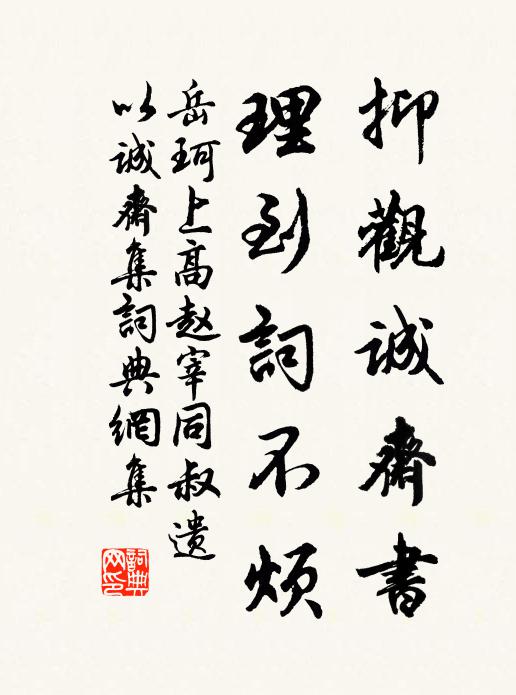 抑觀誠齋書
理到詞不煩
岳珂上高赵宰同叔遗
以誠齋集詞典網集
詞典网印